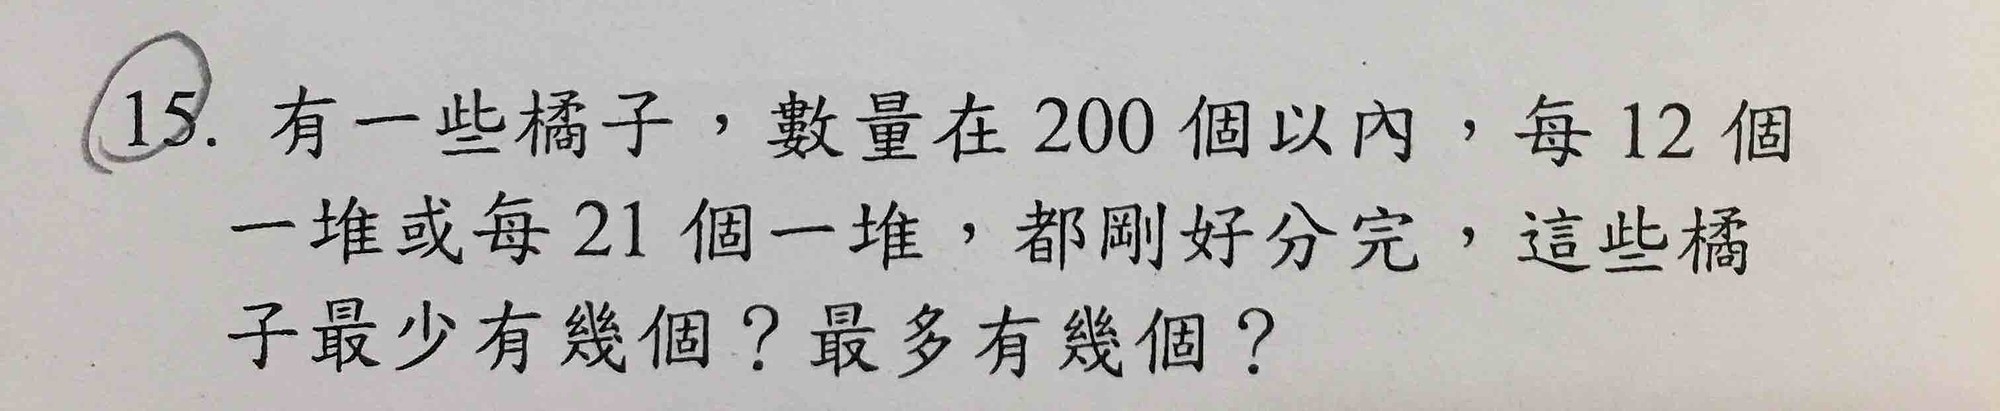 15. 有一些橘子，數量在 200 個以內，每 12 個
一堆或每 21 個一堆，都剛好分完，這些橘
子最少有幾個？最多有幾個？